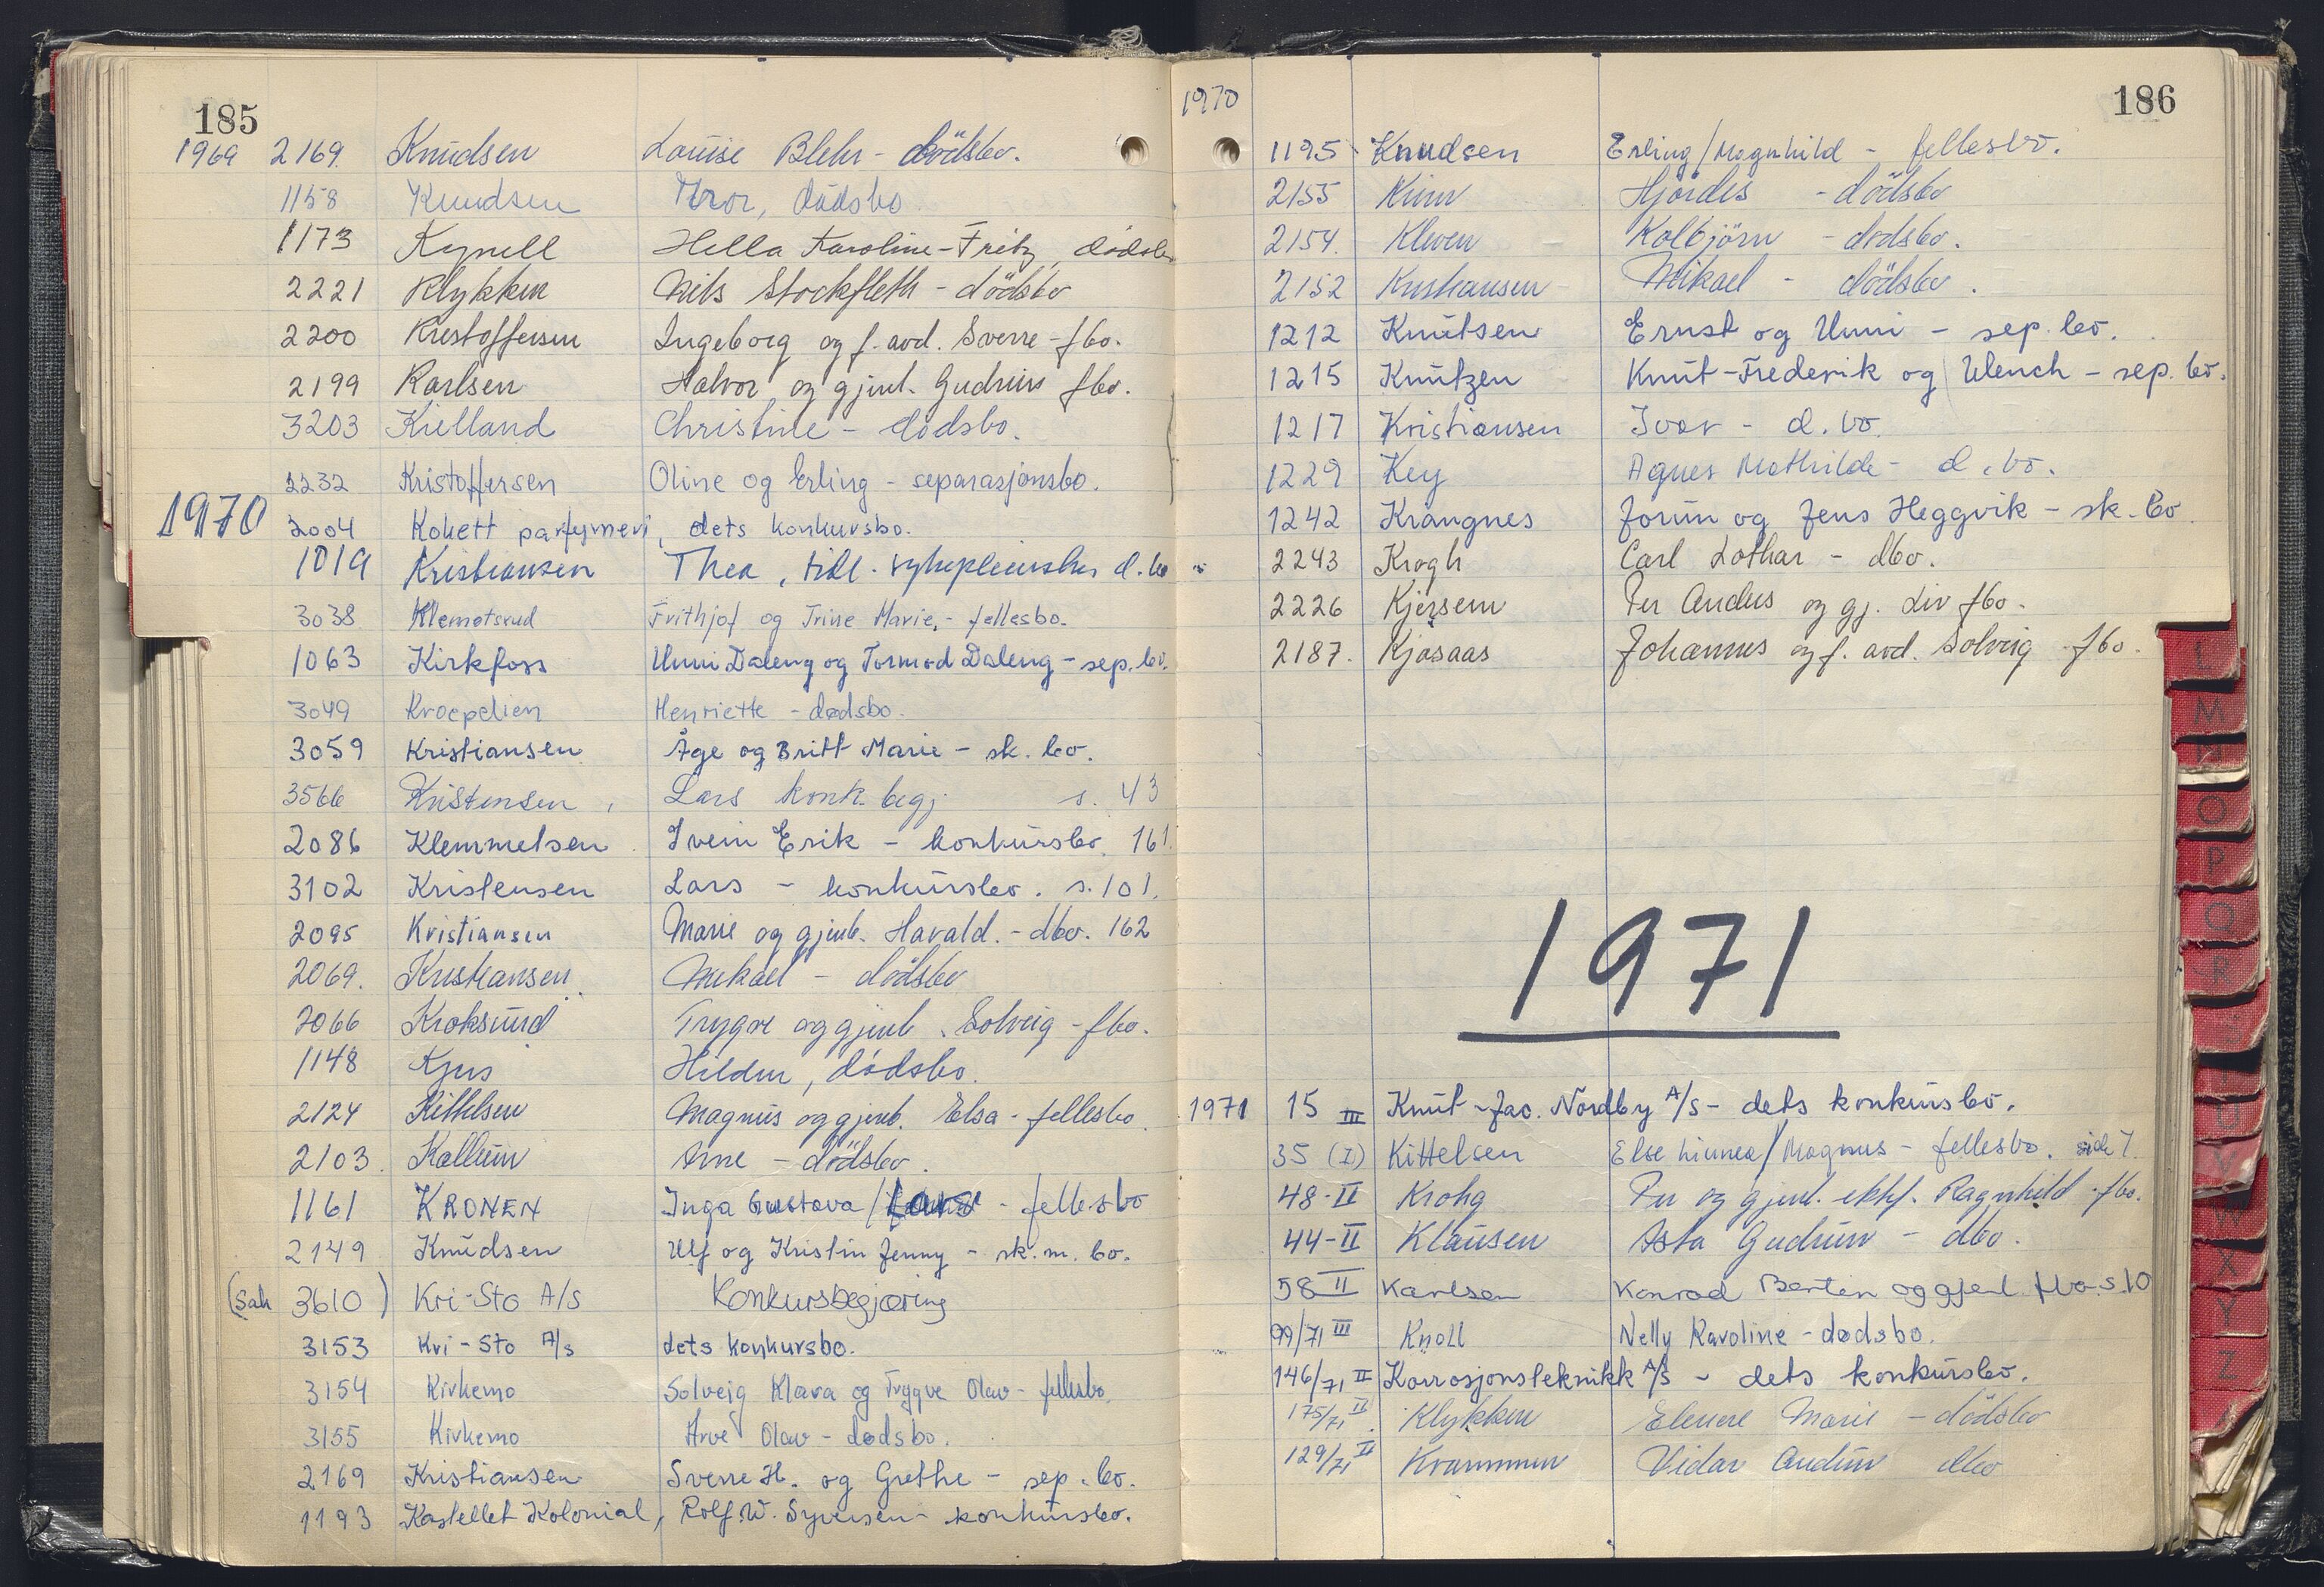 185
1969 2169. Knudsen Louise Blehr - dödsbo.
1158 Knudsen Thor, dødsbo
1173 Kynell Hella Karoline-Fritz, dødsbo
2221 Klykken Nils Stockfleth - dödsbo
2200 Kristoffersen Ingeborg og f. avd. Sverre - fbo.
2199 Karlsen Halvor og gjenl. Gudrun fbo.
3203 Kielland Christine - dödsbo.
2232 Kristoffersen Oline og Erling - separasjonsbo.
1970 2004 Kokett parfymeri, dets konkursbo.
1019 Kristiansen Thea, tidl. sykepleierske d.bo
3038 Klemetsrud Frithjof og Trine Marie, - fellesbo.
1063 Kirkfoss Unni Daleng og Tormod Daleng - sep. bo.
3049 Kroepelien Henriette - dødsbo.
3059 Kristiansen Åge og Britt Marie - sk. bo.
3566 Kristensen, Lars konk. begj s. 43
2086 Klemmetsen Svein Erik - konkursbo. 161
3102 Kristensen Lars - konkursbo. s. 101.
2095 Kristiansen Marie og gjenl. Harald. - dbo. 162
2069. Kristiansen Mikael - dödsbo
2066 Kroksund Trygve og gjenl. Solveig - fbo.
1148 Kjus Hildur, dødsbo.
2124 Kittelsen Magnus og gjenl. Elsa - fellesbo.
2103. Kallum Arne - dödsbo.
1161 KRONEN Inga Gustava / Lars - fellesbo
2149 Knudsen Ulf og Kristin Jenny - sk. m. bo.
(Sak 3610) Kri-Sto A/S Konkursbegjæring
3153 Kri-Sto A/s dets konkursbo.
3154 Kirkemo Solveig Klara og Trygve Olav - fellesbo.
3155 Kirkemo Arve Olav - dødsbo.
2169 Kristiansen Sverre H. og Grethe - sep. bo.
1193 Kastellet Kolonial, Rolf W. Syversen - konkursbo.
1970 186
1195 Knudsen Erling / Magnhild - fellesbo.
2155 Kinn Hjördis - dödsbo
2154. Kleven Kolbjörn - dødsbo.
2152 Kristiansen Mikael - dödsbo.
1212 Knutsen Ernst og Unni - sep. bo.
1215 Knutzen Knut-Frederik og Wench - sep. bo.
1217 Kristiansen Ivar - d. bo.
1229 Key Agnes Mathilde - d. bo.
1242 Krangnes Jorun og Jens Heggvik - sk. bo
2243 Krogh Carl Lothar - dbo.
2226 Kjersem Per Anders og gj. Liv fbo.
2187. Kjøsaas Johannes og f. avd. Solveig fbo.
1971
1971 15 III Knut-Jac. Nordby A/S - dets konkursbo.
35 (I) Kittelsen Else Linnea / Magnus - fellesbo. side 7.
48-II Krohg Per og gjenl. ektf. Ragnhild fbo.
44-II Klausen Asta Gudrun - dbo.
58 II Karlsen Konrad Bertin og gjenl fbo s. 10
99/71 III Knoll Nelly Karoline - dødsbo.
146/71 II Korrosjonsteknikk A/S - dets konkursbo.
175/71 II Klykken Elenore Marie - dödsbo
129/71 II Krammen Vidar Audun dbo
L
M
N
O
P
Q
R
T
U
V
W
X
Y
Z